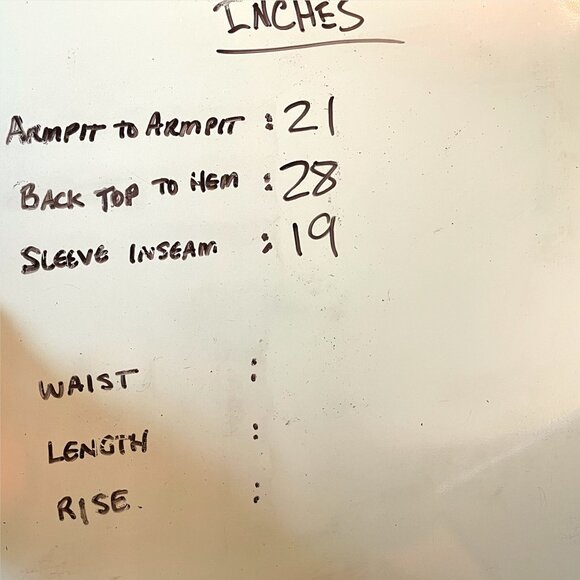 INCHES
ARMPIT TO ARMPIT : 21
BACK TOP TO HEM : 28
SLEEVE INSEAM : 19
WAIST :
LENGTH :
RISE :